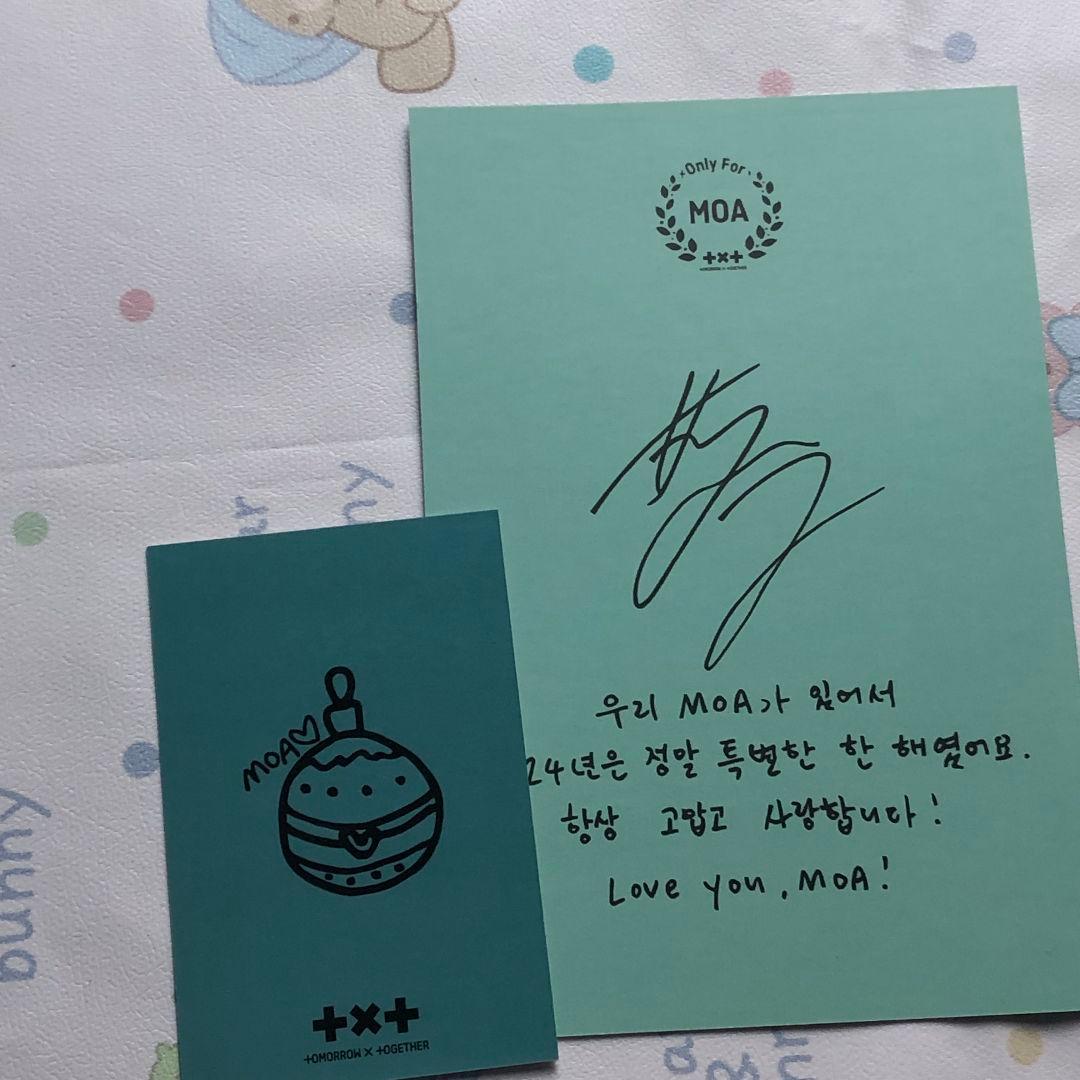 Only For
MOA
+x+
TOMORROW X TOGETHER
우리 MOA가 있어서
24년은 정말 특별한 한 해였어요.
항상 고맙고 사랑합니다!
Love you, MOA!
MOA♡
+x+
TOMORROW X TOGETHER
bunny